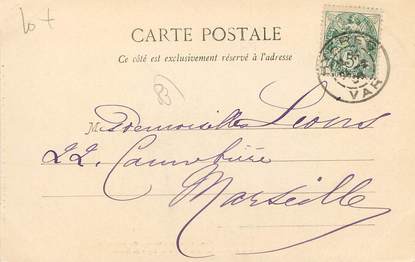 CARTE POSTALE
Ce côté est exclusivement réservé à l'adresse
HYERES
VAR
5
83
Mademoiselle
22. Cannebière
Marseille